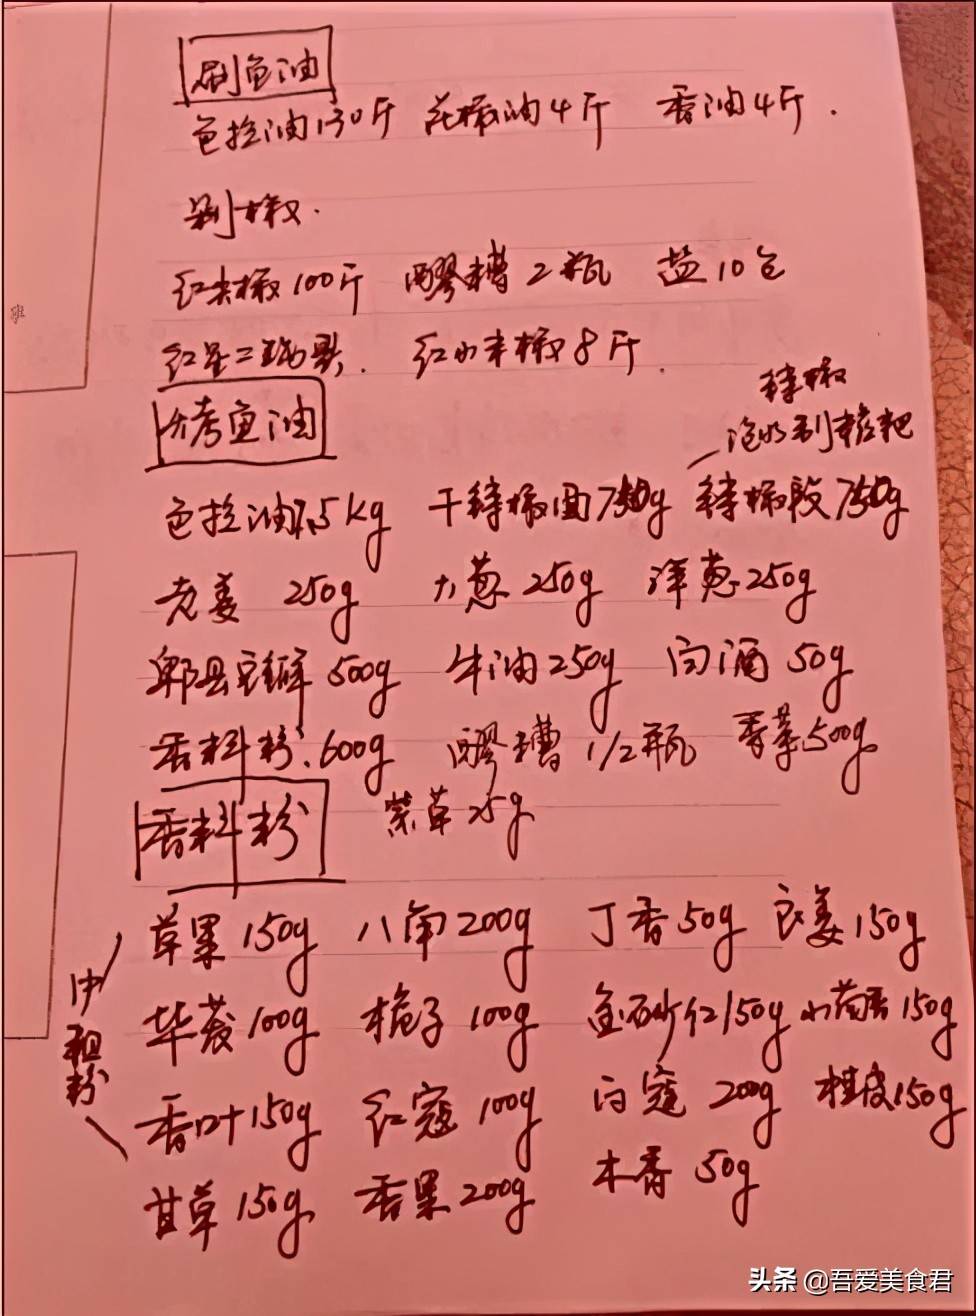 刷鱼油
色拉油130斤 花椒油4斤 香油4斤.
剁椒.
红尖椒100斤 醪糟2瓶 盐10包
红星二锅头. 红小米椒8斤.
辣椒
泡水剁糍粑
烤鱼油
色拉油7.5kg 干辣椒面750g 辣椒段750g
老姜 250g 大葱250g 洋葱250g
郫县豆瓣500g 牛油250g 白酒50g
香料粉.600g 醪糟1/2瓶 香菜500g
香料粉 紫草25g
草果150g 八角200g 丁香50g 良姜150g
毕菱100g 栀子100g 鱼砂仁150g 小茴香150g
中粗粉
香叶150g 红寇100g 白寇200g 桂皮150g
甘草150g 香果200g 木香50g
班
头条 @吾爱美食君